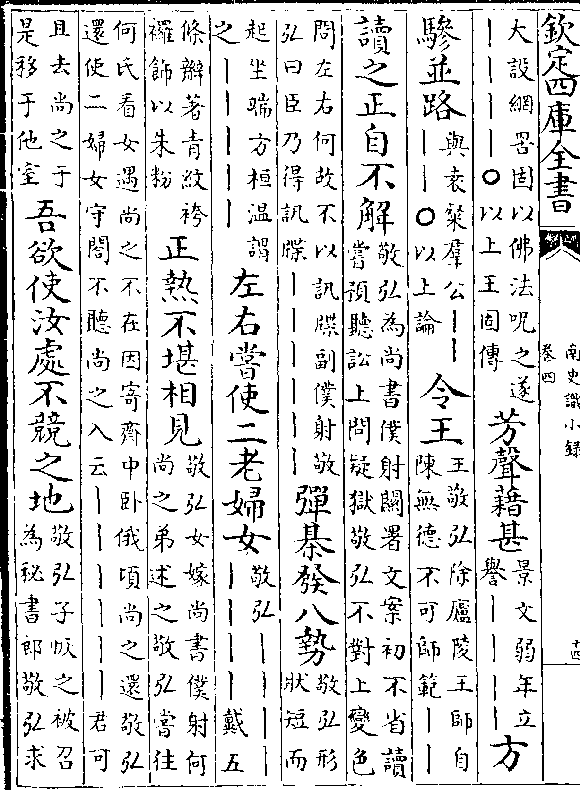 欽定四庫全書
南史識小録
卷四
十四
大設網罟固以佛法呪之遂
｜｜｜｜○以上王固傳
芳聲藉甚
景文弱年立
譽｜｜｜｜
方
驂並路
與袁粲羣公｜｜
｜｜○以上論
令王
王敬弘除廬陵王師自
陳無德不可師範｜｜
讀之正自不解
敬弘為尚書僕射關署文案初不省讀
嘗預聽訟上問疑獄敬弘不對上變色
問左右何故不以訊牒副僕射敬
弘曰臣乃得訊牒｜｜｜｜｜｜
彈棊發八勢
敬弘形
狀短而
起坐端方桓温謂
之｜｜｜｜｜
左右嘗使二老婦女
敬弘｜｜｜｜
｜｜｜｜戴五
條辮著青紋袴
襦飾以朱粉
正熱不堪相見
敬弘女嫁尚書僕射何
尚之弟述之敬弘嘗往
何氏看女遇尚之不在因寄齋中卧俄頃尚之還敬弘
還使二婦女守閤不聽尚之入云｜｜｜｜｜｜君可
且去尚之于
是移于他室
吾欲使汝處不競之地
敬弘子恢之被召
為秘書郎敬弘求